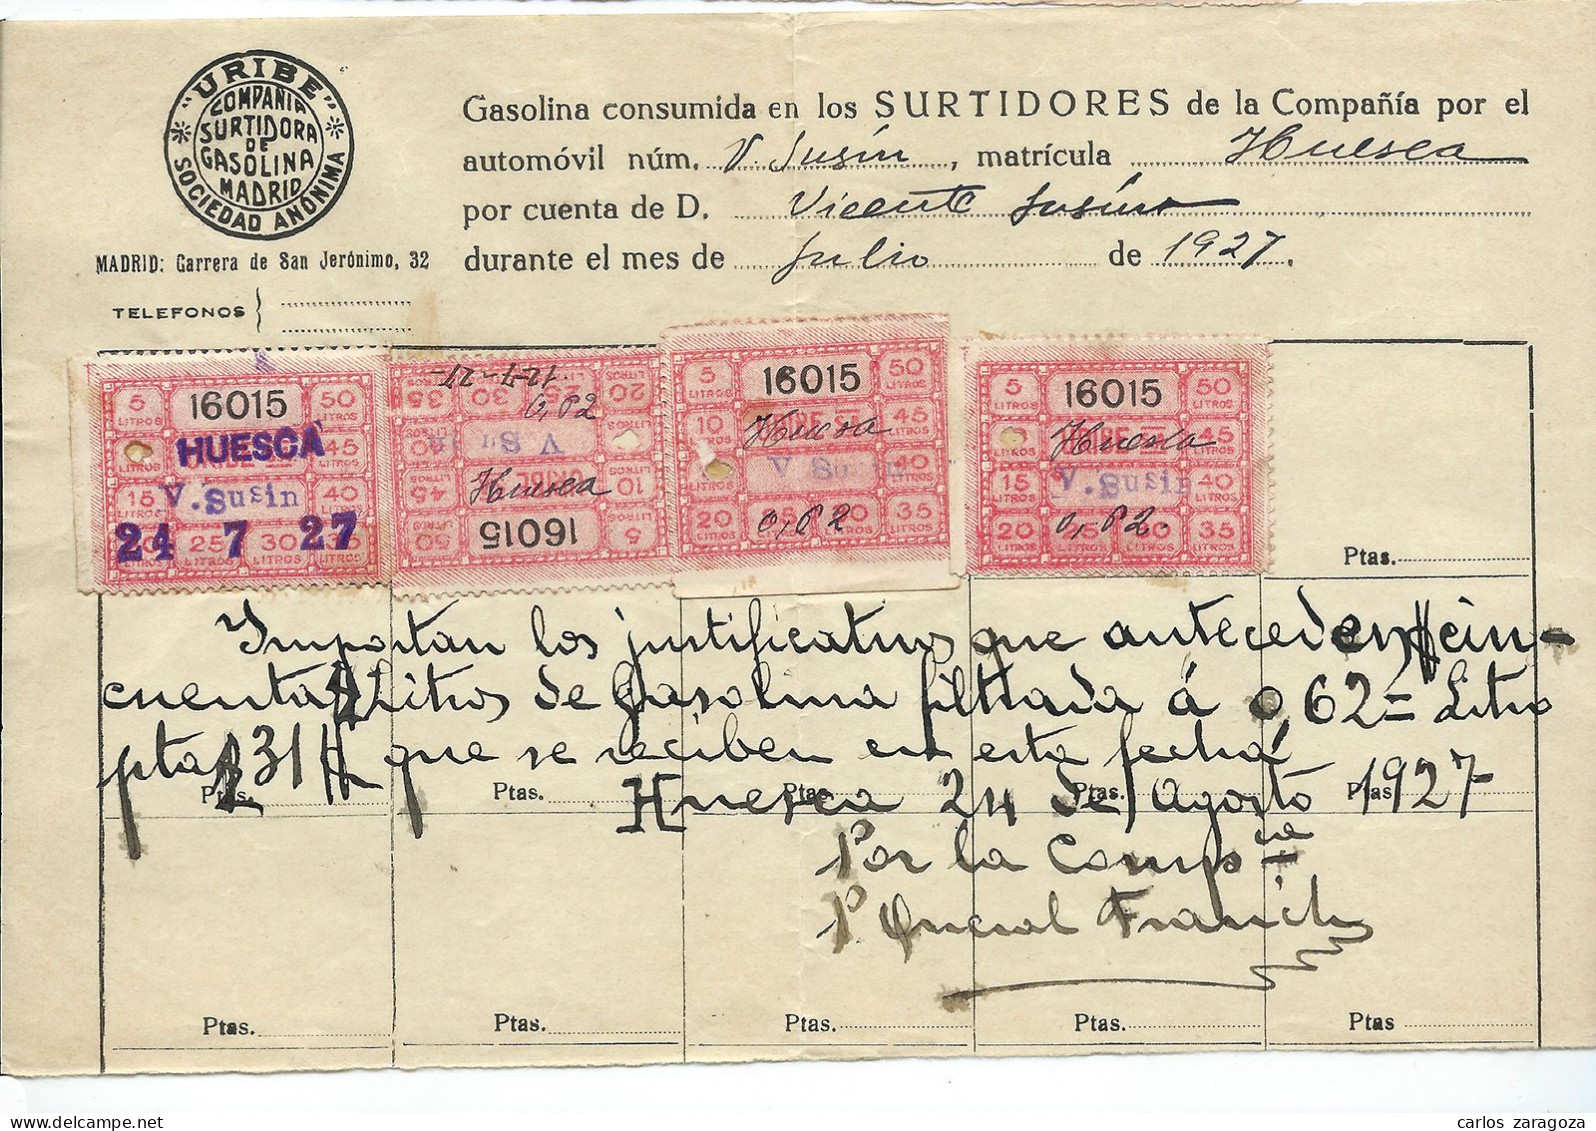 "URIBE"
COMPAÑIA
SURTIDORA
DE
GASOLINA
MADRID
SOCIEDAD ANÓNIMA
MADRID: Carrera de San Jerónimo, 32
TELEFONOS
Gasolina consumida en los SURTIDORES de la Compañía por el
automóvil núm. V. Susín, matrícula Huesca
por cuenta de D. Vicente Susín
durante el mes de Julio de 1927.
5 LITROS 16015 50 LITROS
HUESCA
45
LITROS
15 V. Susin 40
LITROS
24 7 27
25 30 35
LITROS LITROS
12-7-27-
0,62
V Susin
Huesca
5 LITROS 16015 50 LITROS
10 45
5 LITROS 16015 50 LITROS
10 Huesca 45
V Susin 40
20 0,62 35
LITROS
5 LITROS 16015 50 LITROS
Huesca 45
15 V. Susin 40
LITROS LITROS
20 0,62. 30 35
LITROS
Ptas.
Importan los justificativos que anteceden cin-
cuenta Litros de Gasolina filtrada á 0,62= Litro
ptas 31 que se reciben en esta fecha
Ptas. Ptas. Ptas. Ptas. Ptas
Huesca 24 de Agosto 1927
Por la Comp
P
Ptas. Ptas. Ptas. Ptas. Ptas
carlos zaragoza